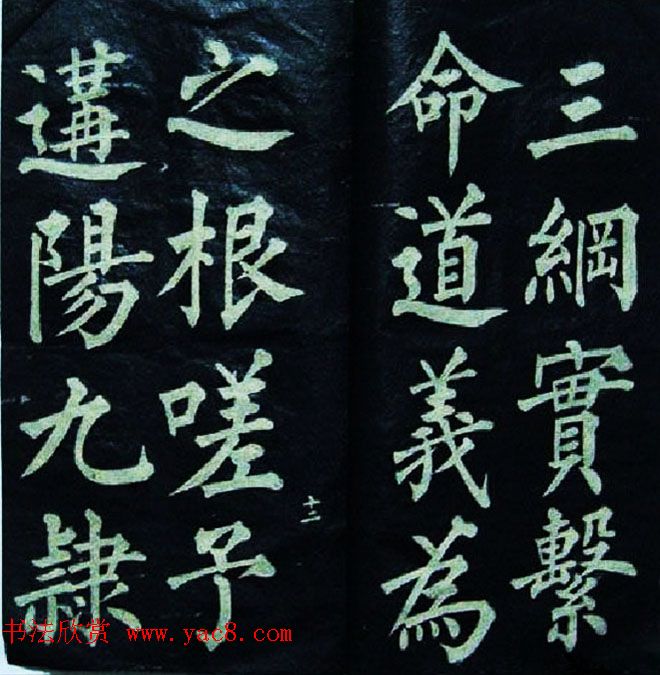 三綱實繫
命道義為
之根嗟予
遘陽九隷
十二
书法欣赏 www.yac8.com